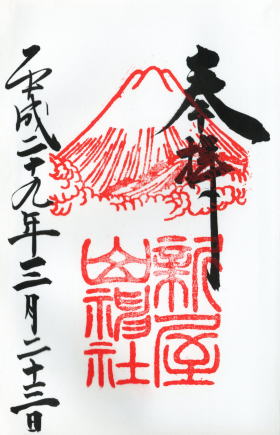 奉拝
新屋
山神社
平成二十九年三月二十三日